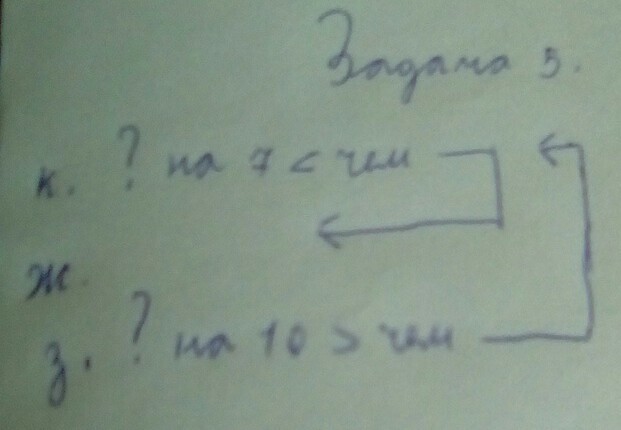 Задача 5.
к. ? на 7 < чем
ж.
з. ? на 10 > чем